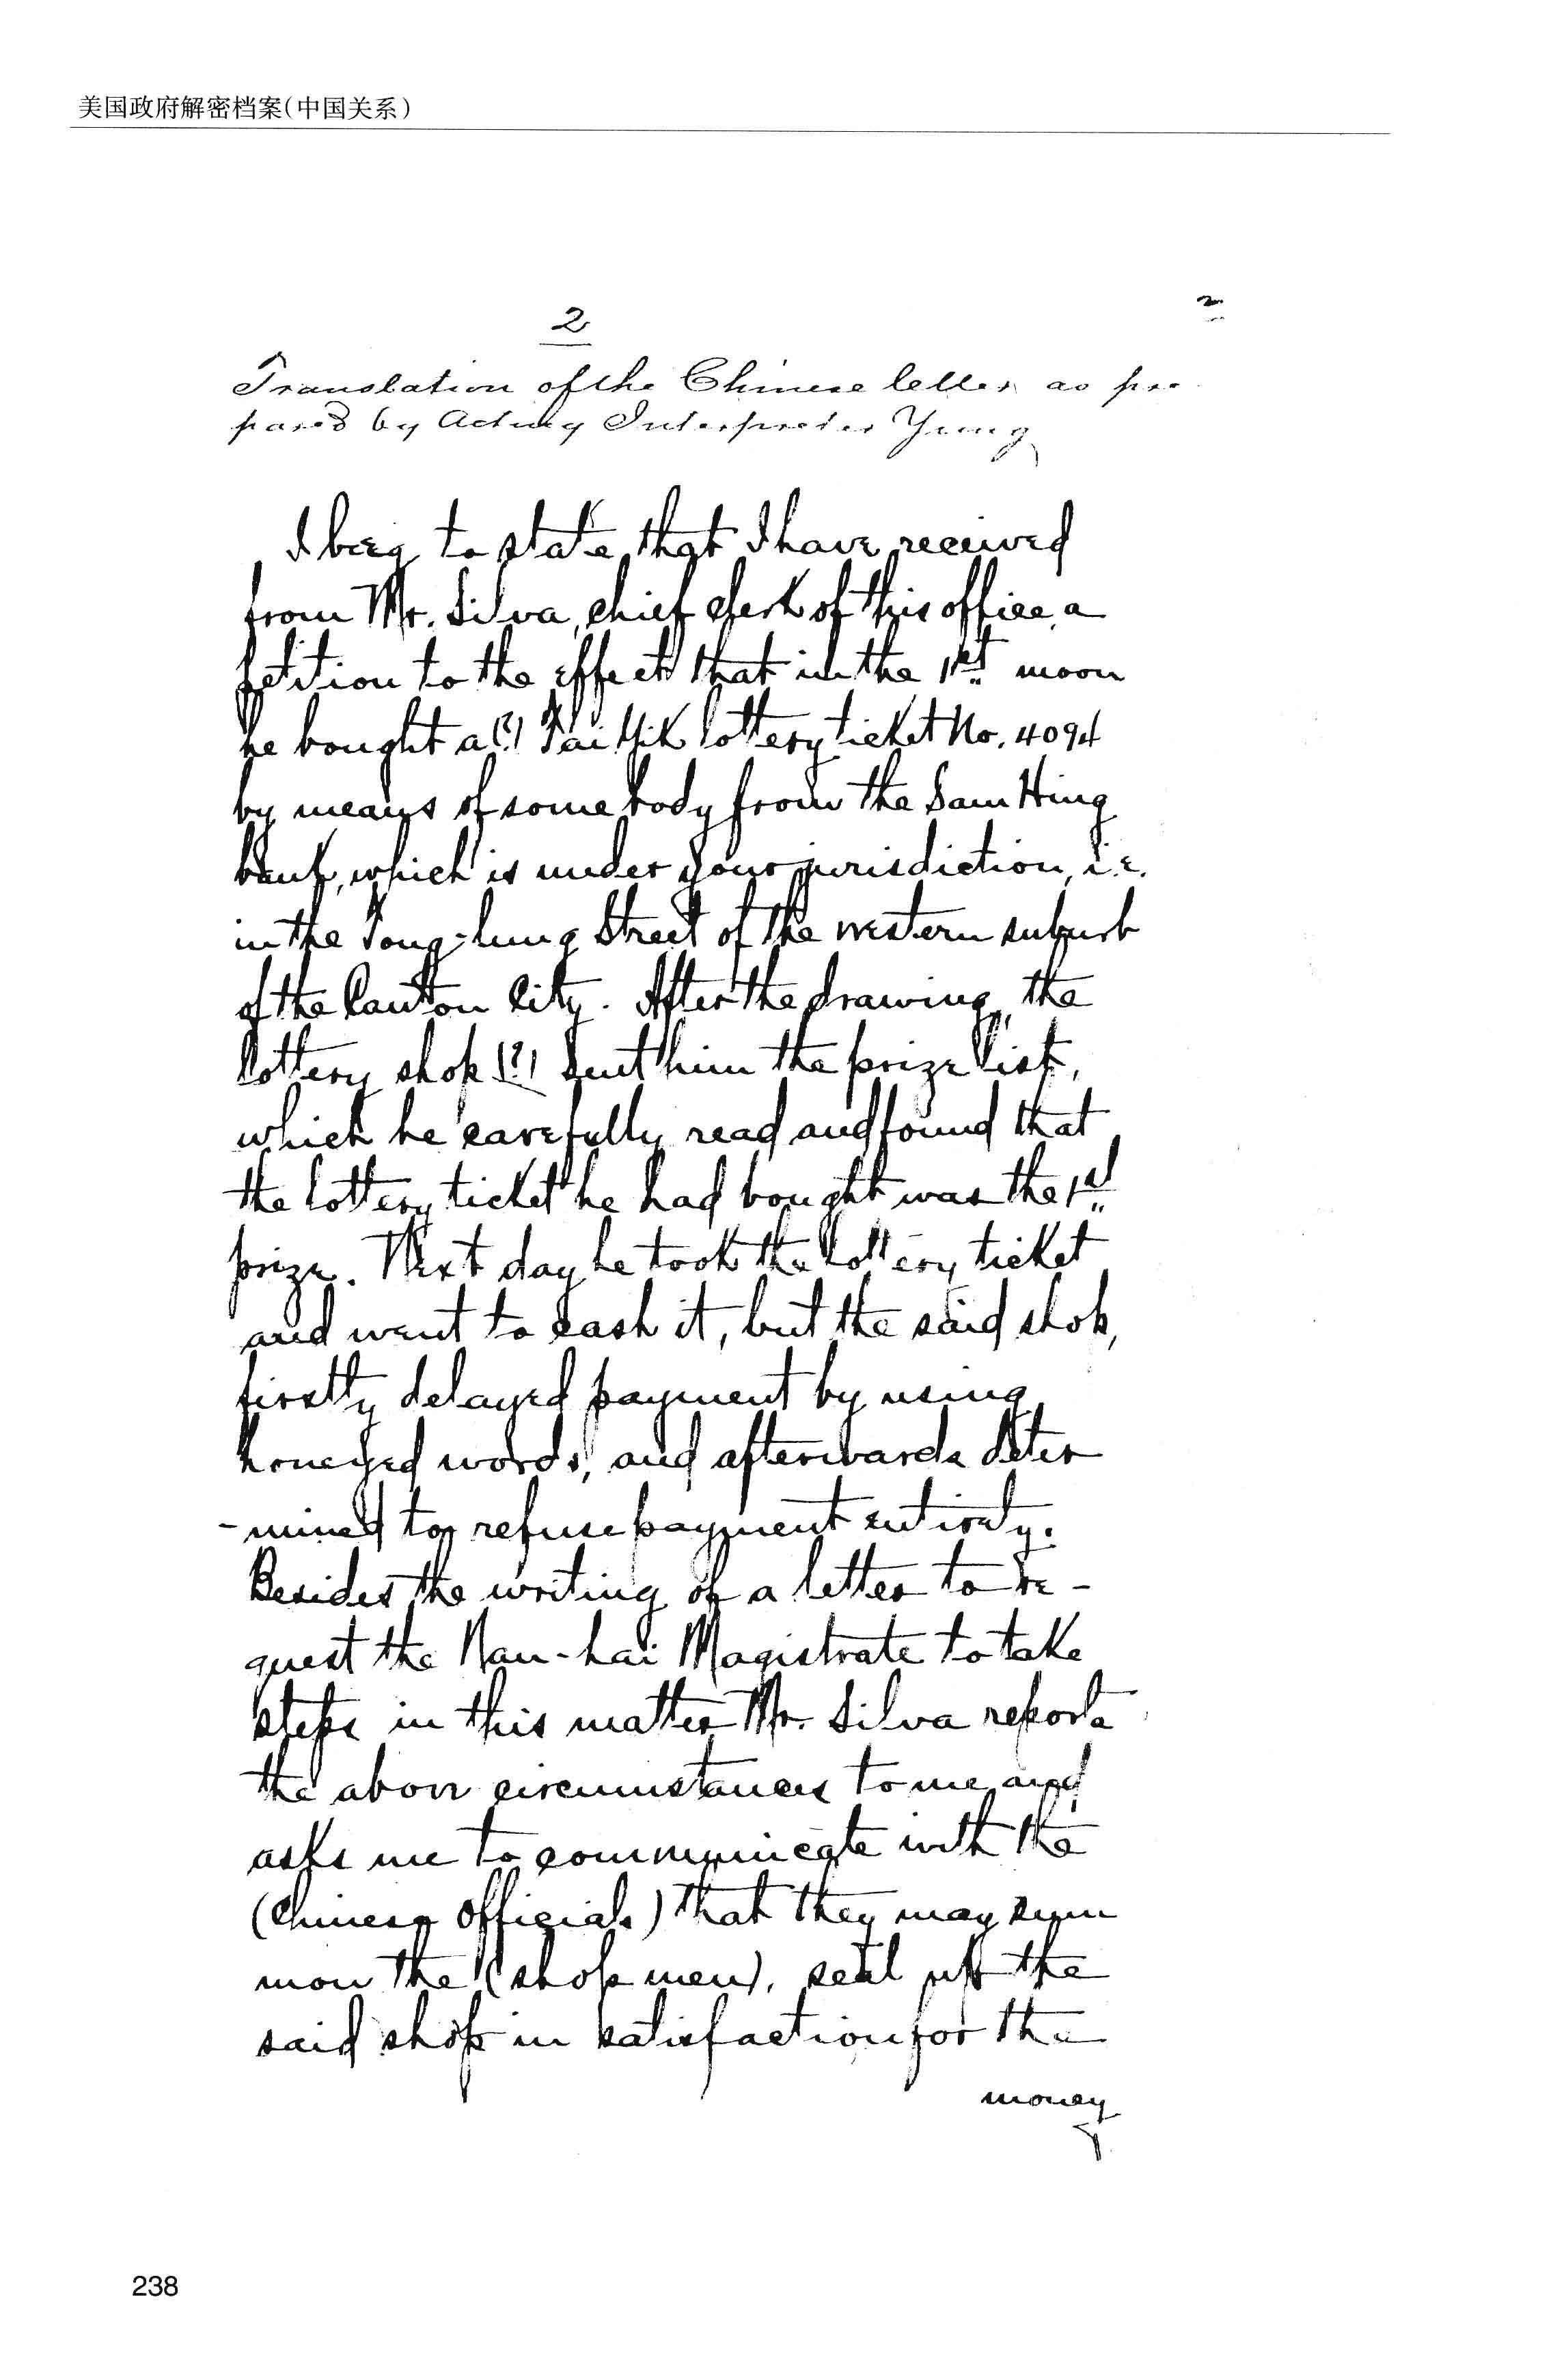 美国政府解密档案(中国关系)
2
2
Translation of the Chinese letter as pre
pared by Acting Interpreter Yung
I beg to state that I have received
from Mr. Silva, chief clerk of this office, a
petition to the effect that in the 1st moon
he bought a (?) Tai Hik lottery ticket No. 4094
by means of somebody from the Sam Hing
bank, which is under your jurisdiction, i.e.
in the Tong-lung Street of the western suburb
of the Canton City. After the drawing, the
lottery shop (?) sent him the prize list,
which he carefully read and found that
the lottery ticket he had bought was the 1st
prize. Next day he took the lottery ticket
and went to cash it, but the said shop,
firstly delayed payment by using
honeyed words, and afterwards deter
-mined to refuse payment entirely.
Besides the writing of a letter to re-
quest the Nan-hai Magistrate to take
steps in this matter Mr. Silva reports
the above circumstances to me, and
asks me to communicate with the
(Chinese Officials) that they may sum
mon the (shop men), seal up the
said shop in satisfaction for the
money
238